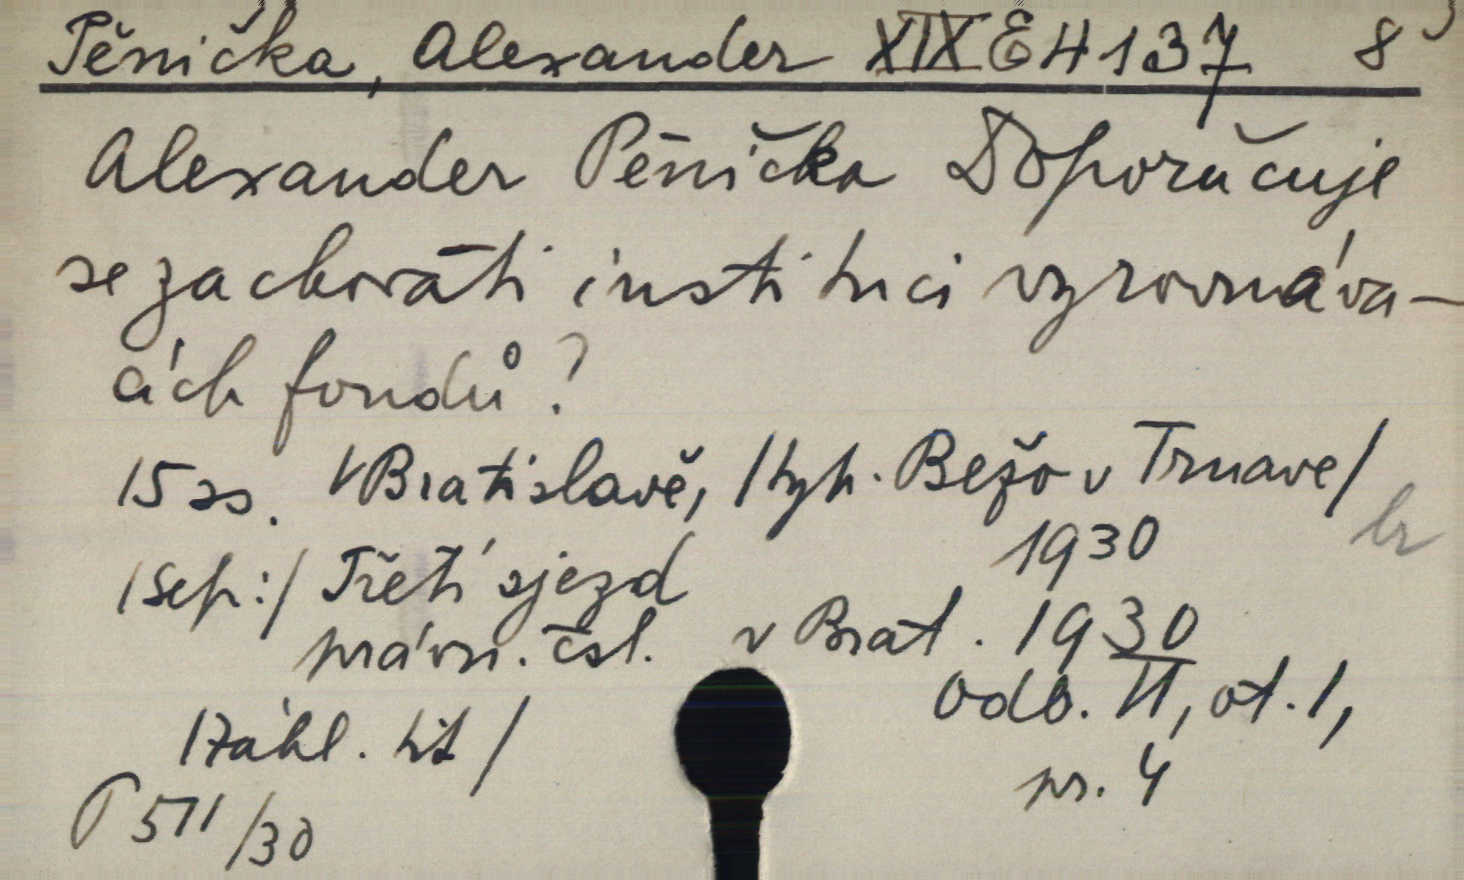 Pěnička, Alexander XIX E H 137 8°
Alexander Pěnička Doporučuje
se zachováti instituci vyrovnáva-
cích fondů?
15 ss. V Bratislavě, /typ. Bežo v Trnave/
1930
/Sep:/ Třetí sjezd
právn. čsl. v Brat. 1930
Odb. II, ot. 1,
/Záhl. tit/
pr. 4
P 511/30